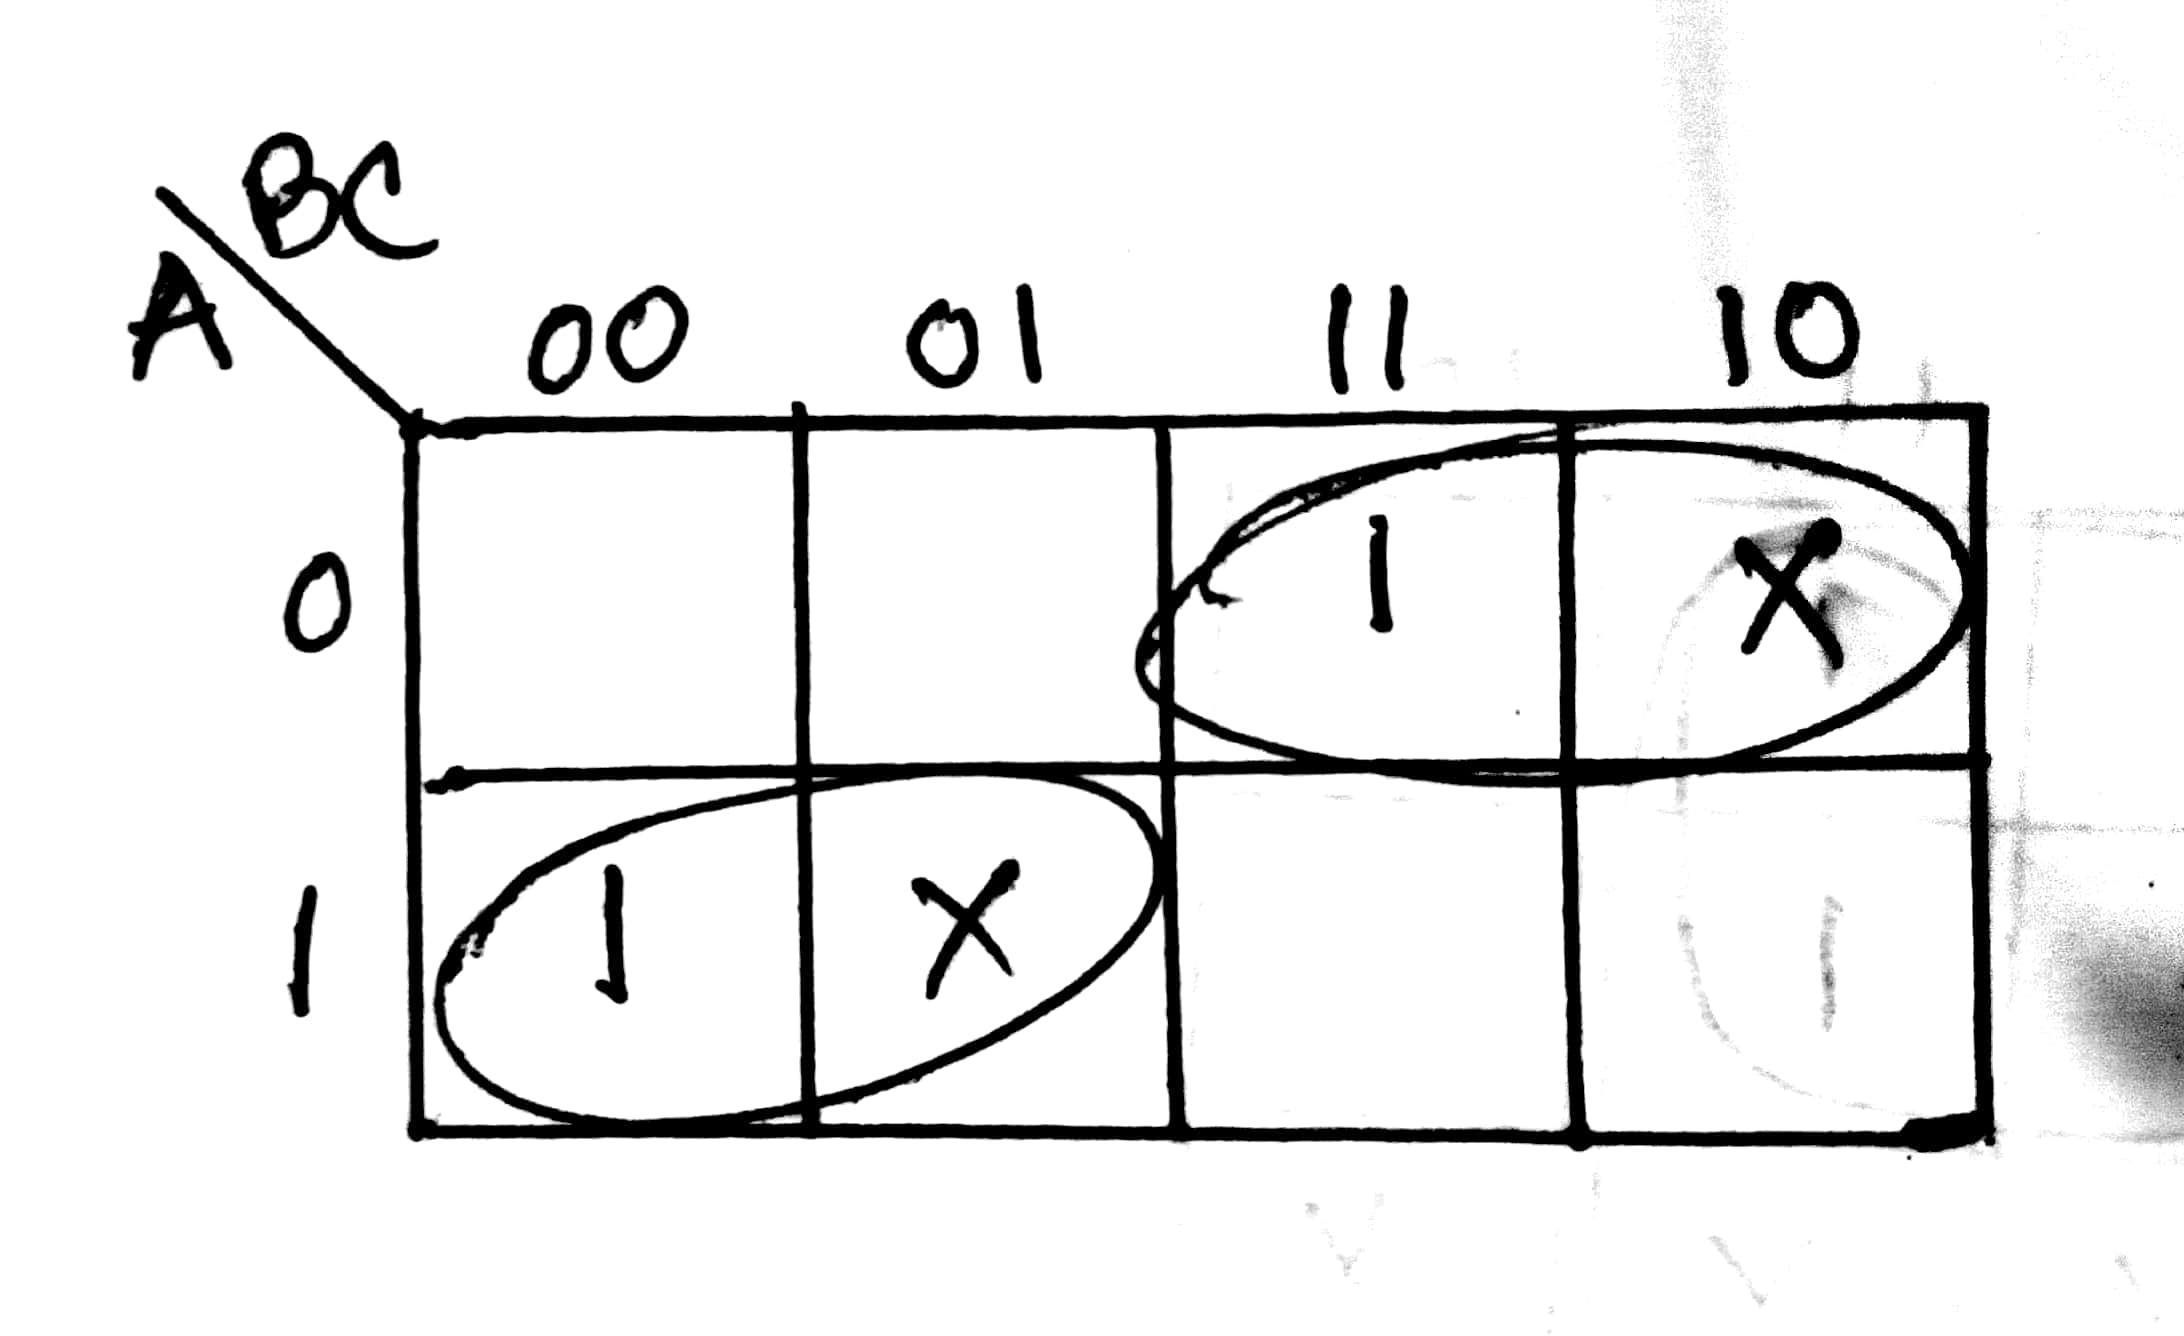 BC
A
00 01 11 10
0 1 X
1 1 X